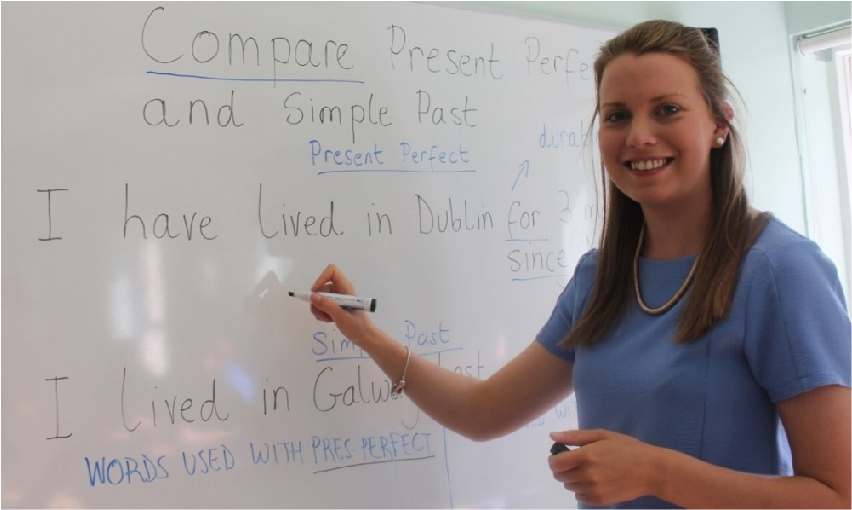 Compare Present
and Simple Past
Present Perfect
I have lived in Dublin for 3
since
Simple Past
I lived in
WORDS USED WITH PRES-PERFECT